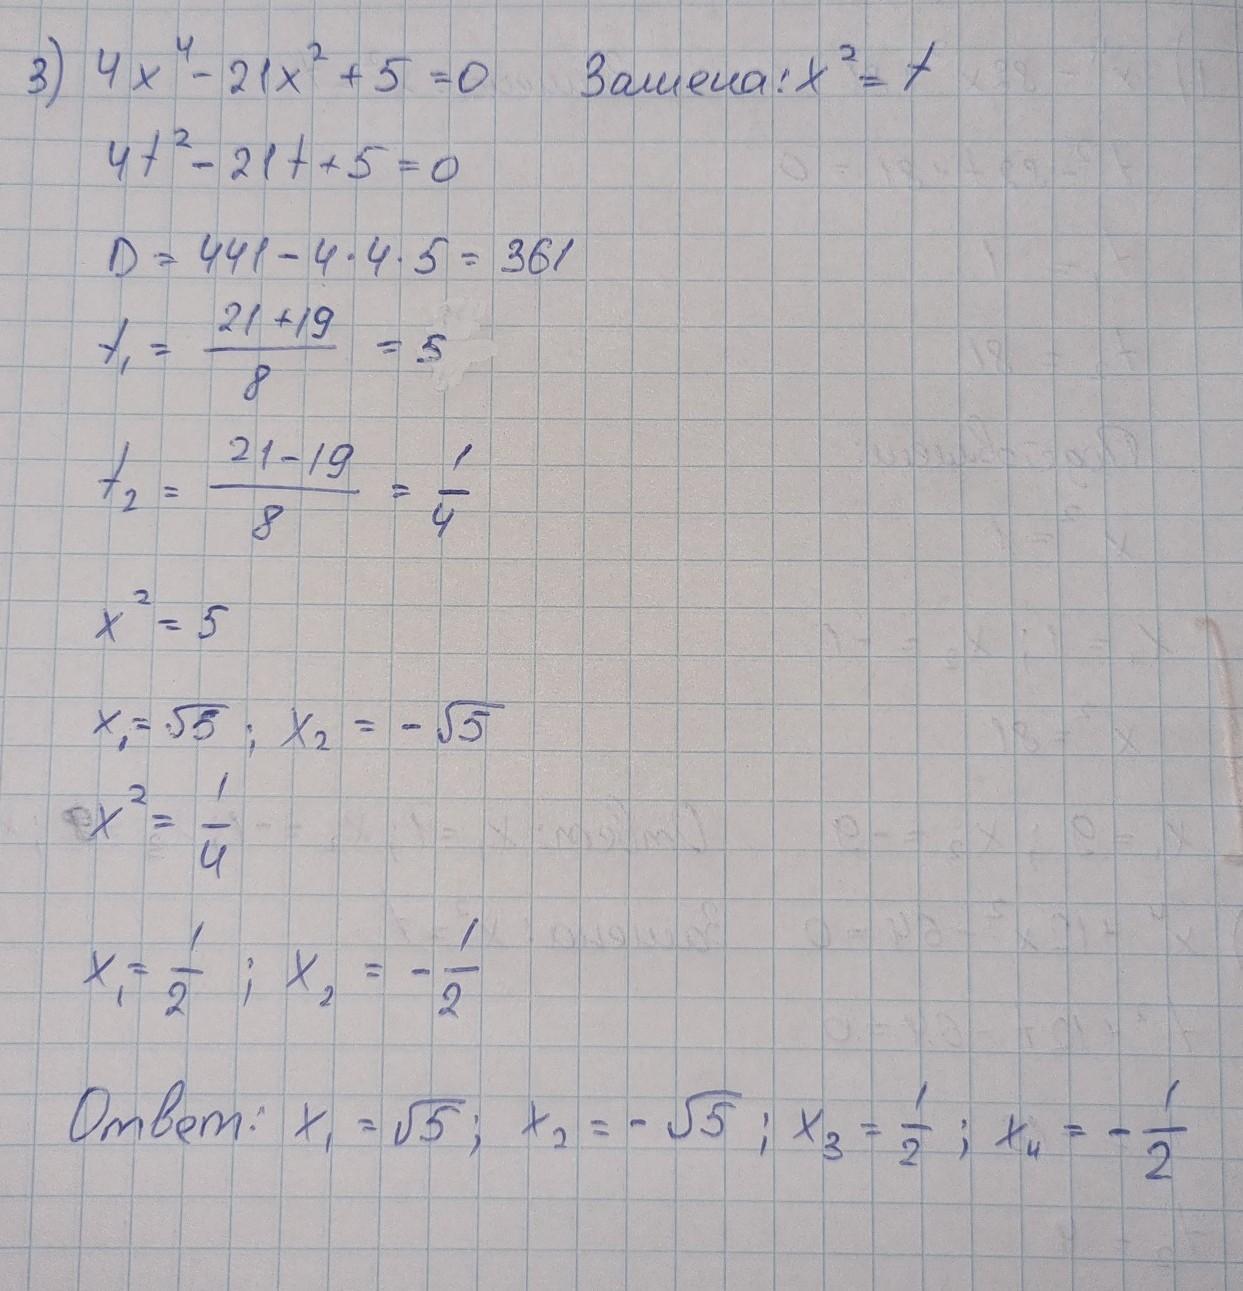 3) 4x⁴ - 21x² + 5 = 0 Замена: x² = t
4t² - 21t + 5 = 0
D = 441 - 4 · 4 · 5 = 361
t₁ = (21 + 19)/8 = 5
t₂ = (21 - 19)/8 = 1/4
x² = 5
x₁ = √5 ; x₂ = -√5
x² = 1/4
x₁ = 1/2 ; x₂ = -1/2
Ответ: x₁ = √5; x₂ = -√5 ; x₃ = 1/2 ; x₄ = -1/2